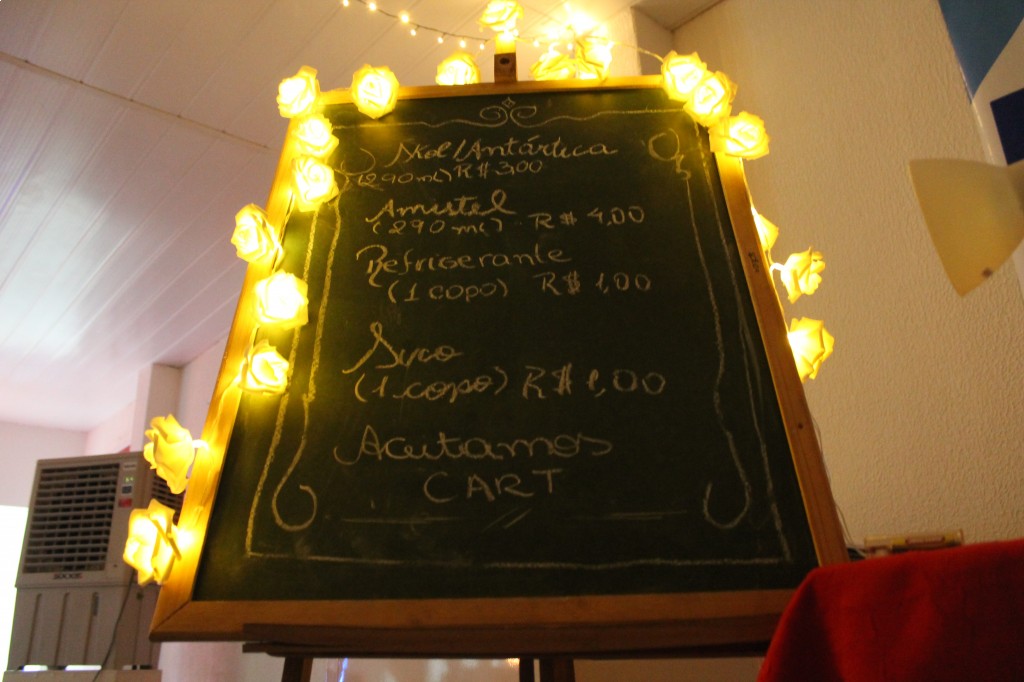 Skol/Antártica
(290ml) R$ 3,00
Amstel
(290 ml) - R$ 4,00
Refrigerante
(1 copo) R$ 1,00
Suco
(1 copo) R$ 1,00
Aceitamos
CART